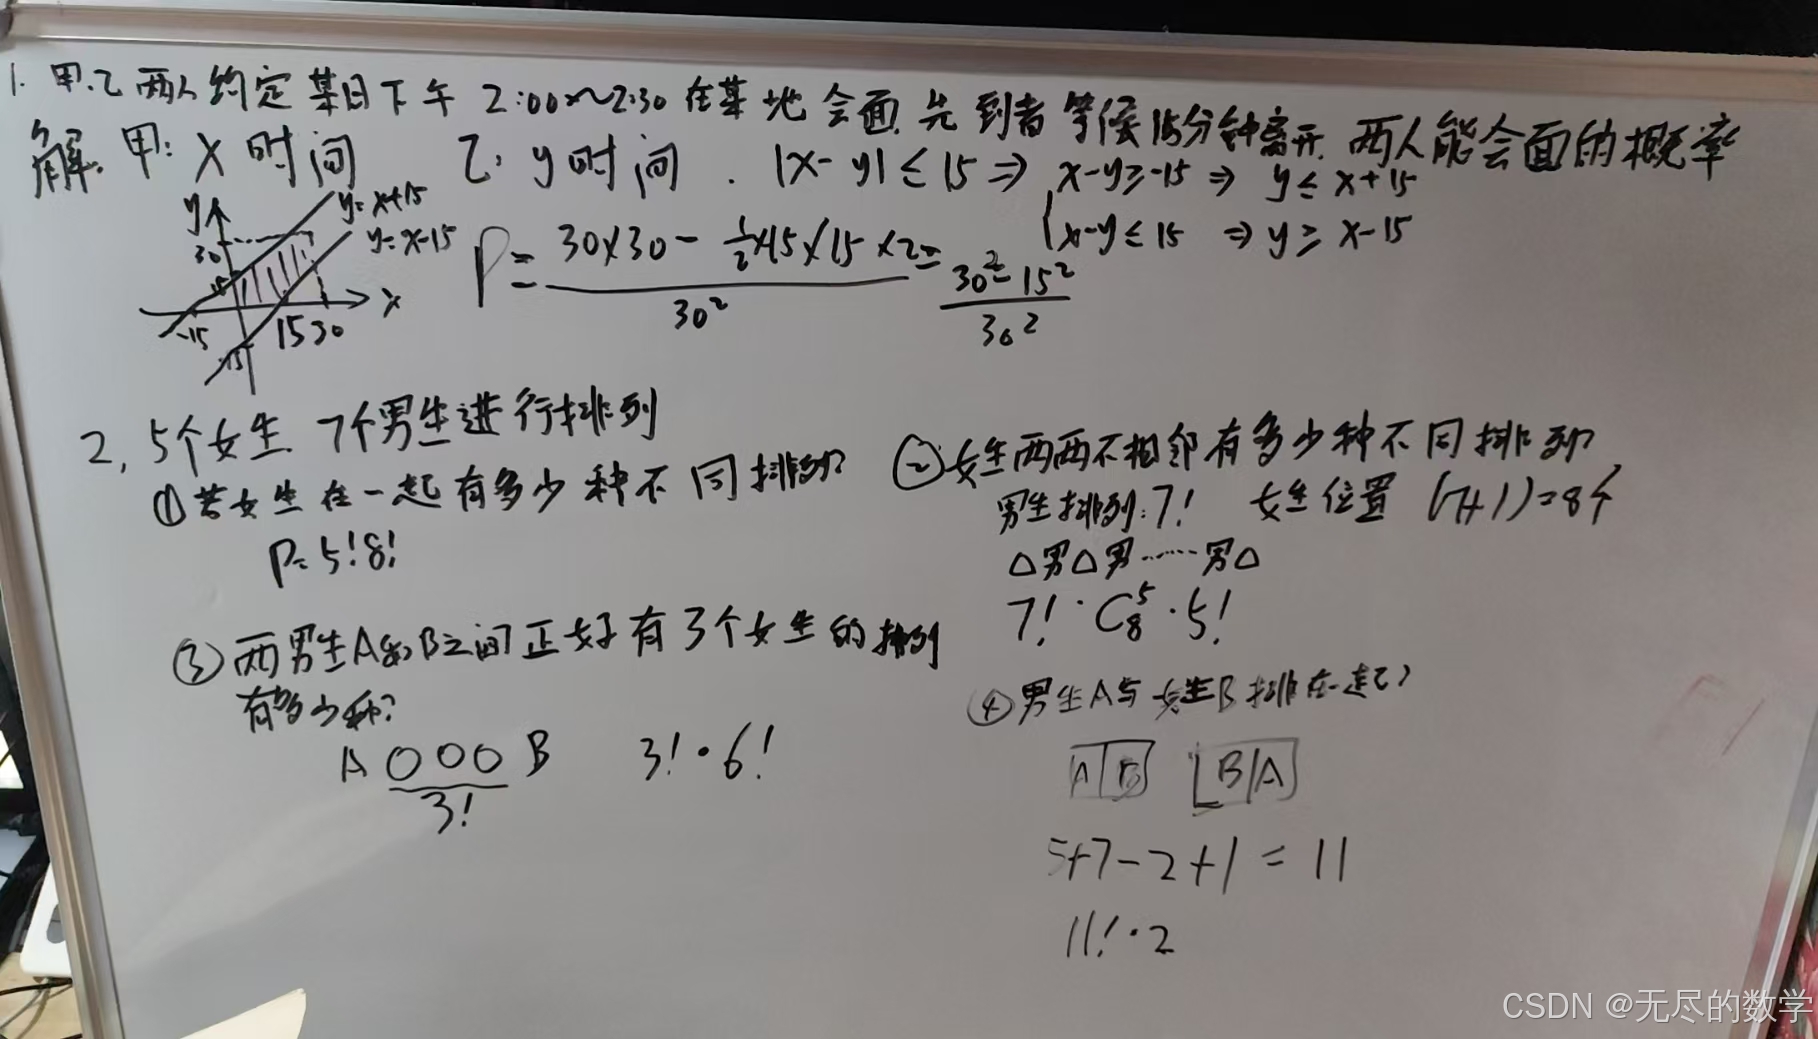 1. 甲.乙两人约定某日下午 2:00~2:30 在某地会面.先到者等候15分钟离开.两人能会面的概率
解. 甲: x 时间 乙: y 时间 . |x-y| ≤ 15 ⇒ { x-y≥-15 ⇒ y≤ x+15
x-y≤ 15 ⇒ y≥ x-15
y 30 15 -15 15 30 x -15
y=x+15
y=x-15
P = (30×30 - 1/2×15×15×2) / 30² = (30²-15²) / 30²
2, 5个女生 7个男生进行排列
① 若女生在一起有多少种不同排列?
P= 5!8!
② 女生两两不相邻有多少种不同排列?
男生排列: 7! 女生位置 (7+1)=8个
△男△男······男△
7! · C₈⁵ · 5!
③ 两男生A和B之间正好有3个女生的排列
有多少种?
A OOO B 3! · 6!
3!
④ 男生A与女生B排在一起?
A|B B|A
5+7-2+1 = 11
11! · 2
CSDN @无尽的数学